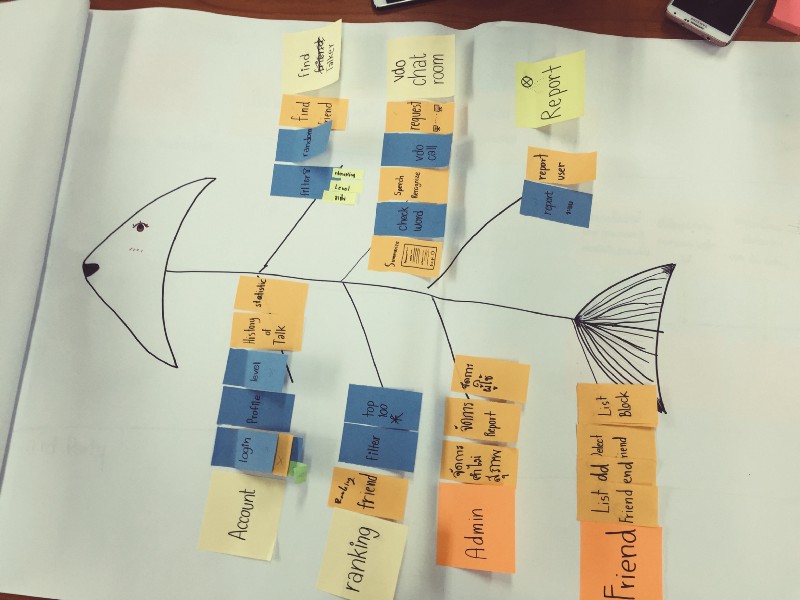 find
friend
Talker
find
random
filters
Level
vdo
chat
room
request
vdo
call
Speech
Recognize
check
word
Summarize
Report
report
user
report
statistic
History
of
Talk
level
Profile
login
Account
top
100
filter
Ranking
friend
ranking
จัดการ
ผู้ใช้
จัดการ
Report
จัดการ
คำไม่
สุภาพ
Admin
List
Block
List
Friend
Friend